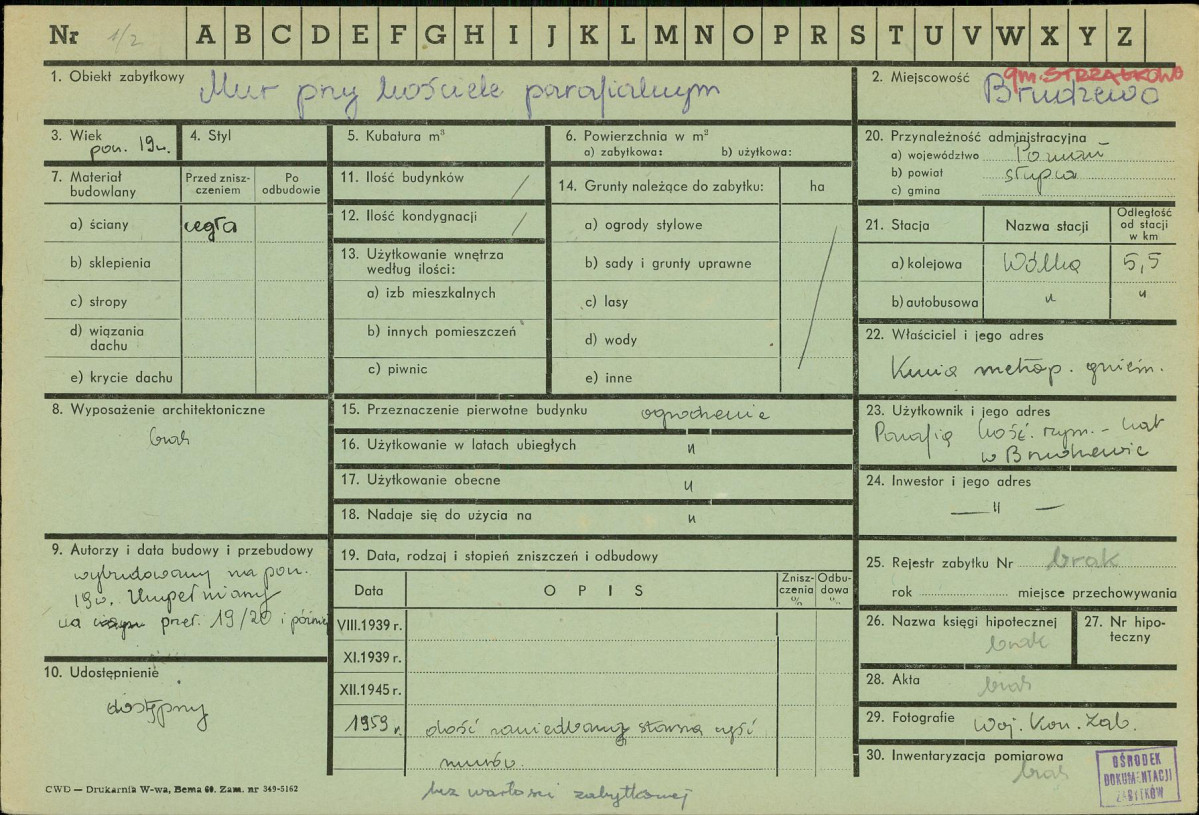 Nr 1/2 A B C D E F G H I J K L M N O P R S T U V W X Y Z
1. Obiekt zabytkowy Mur przy kościele parafialnym
2. Miejscowość gm. STRZAŁKOWO
Brudzewo
3. Wiek
pocz. 19 w.
4. Styl
5. Kubatura m³
6. Powierzchnia w m²
a) zabytkowa: b) użytkowa:
7. Materiał budowlany
Przed zniszczeniem
Po odbudowie
a) ściany cegła
b) sklepienia
c) stropy
d) wiązania dachu
e) krycie dachu
11. Ilość budynków /
12. Ilość kondygnacji /
13. Użytkowanie wnętrza
według ilości:
a) izb mieszkalnych
b) innych pomieszczeń
c) piwnic
14. Grunty należące do zabytku: ha
a) ogrody stylowe
b) sady i grunty uprawne
c) lasy
d) wody
e) inne
20. Przynależność administracyjna
a) województwo Poznań
b) powiat Słupca
c) gmina
21. Stacja
Nazwa stacji
Odległość od stacji w km
a) kolejowa Wólka 5,5
b) autobusowa " "
22. Właściciel i jego adres
Kuria metrop. gnieźn.
8. Wyposażenie architektoniczne
brak
15. Przeznaczenie pierwotne budynku ogrodzenie
16. Użytkowanie w latach ubiegłych "
17. Użytkowanie obecne "
18. Nadaje się do użycia na "
23. Użytkownik i jego adres
Parafia kość. rzym.-kat
w Brudzewie
24. Inwestor i jego adres
— " —
9. Autorzy i data budowy i przebudowy
wybudowany na pocz.
19 w. Uzupełniany
na przeł. 19/20 i później
10. Udostępnienie
dostępny
19. Data, rodzaj i stopień zniszczeń i odbudowy
Data
O P I S
Zniszczenia %
Odbudowa %
VIII.1939 r.
XI.1939 r.
XII.1945 r.
1959 r. dość zaniedbany starsza część
murów.
bez wartości zabytkowej
25. Rejestr zabytku Nr brak
rok miejsce przechowywania
26. Nazwa księgi hipotecznej
brak
27. Nr hipoteczny
28. Akta brak
29. Fotografie Woj. Kon. Zab.
30. Inwentaryzacja pomiarowa
brak
OŚRODEK
DOKUMENTACJI
ZABYTKÓW
CWD — Drukarnia W-wa, Bema 60. Zam. nr 349-5162